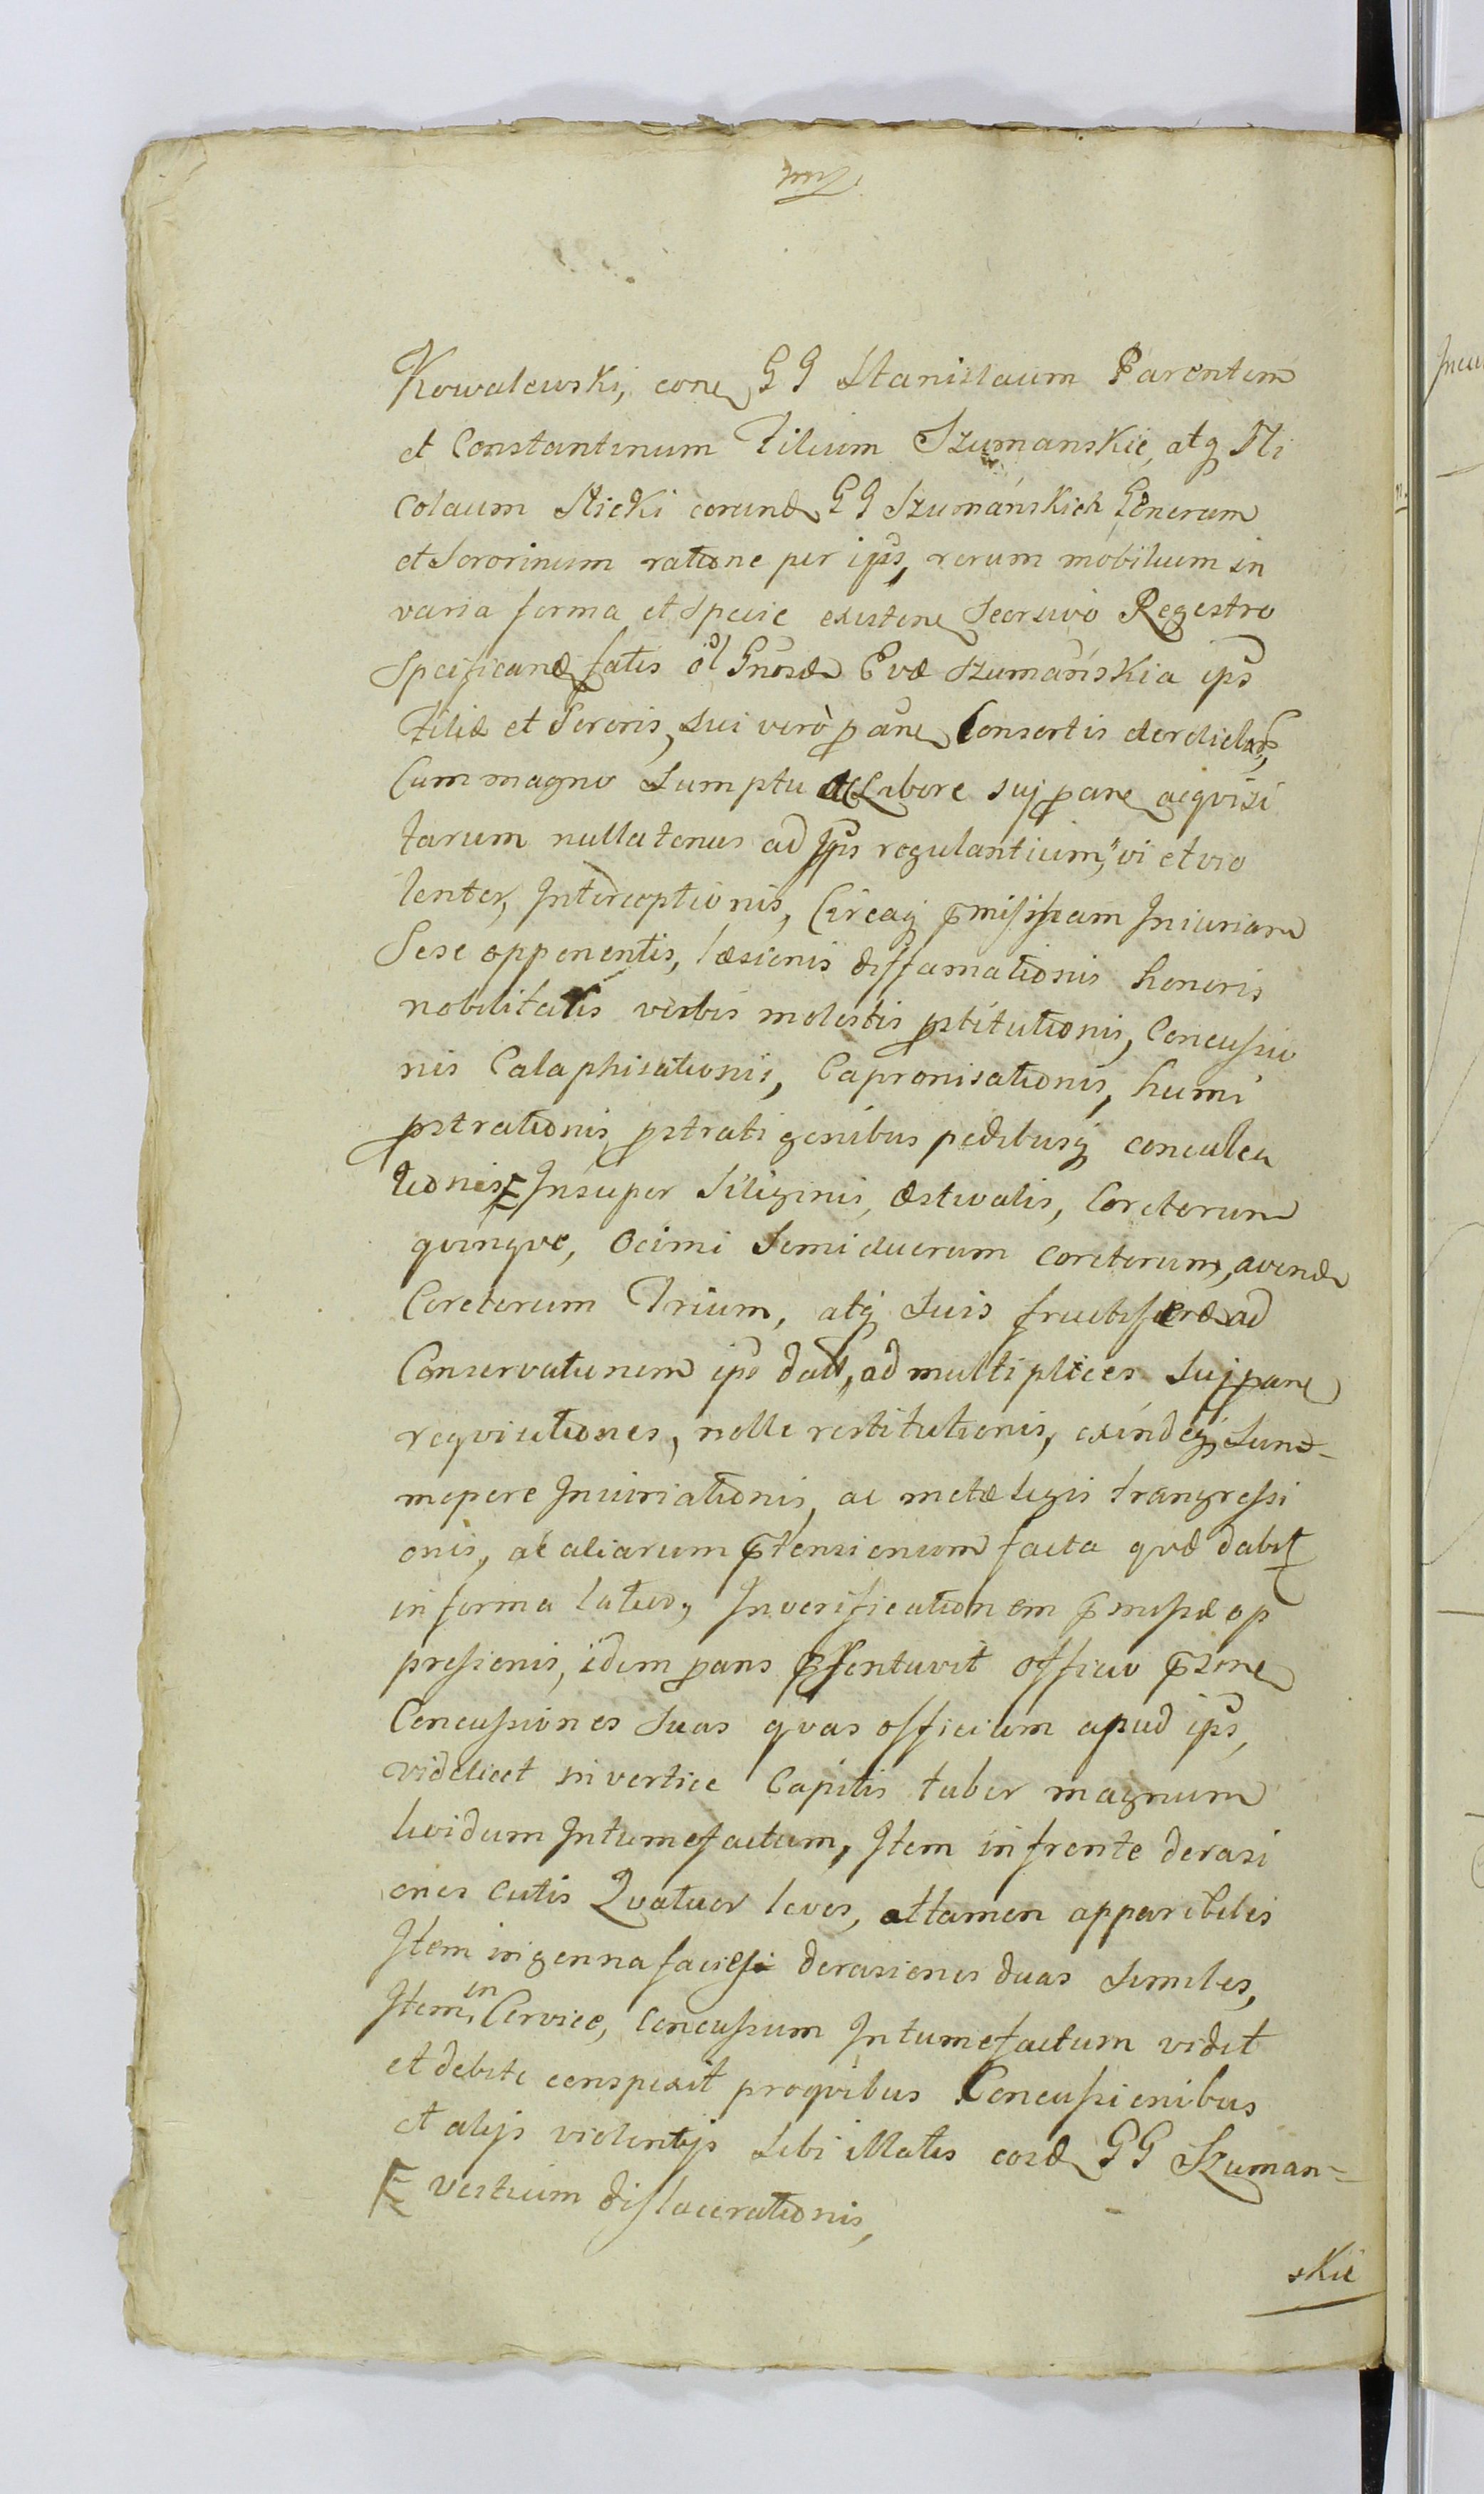 Kowalewski, cone GG Stanislaum Parentem
et Constantinum Filium Szumanskie, atq Ni
colaum Nicki eorund GG Szumańskich Generum
et Sororinum ratione per ips, rerum mobilium in
varia forma et Specie existen Seorsivò Regestro
Specificand fatis Gnosæ Evæ Szumańskia ips
Filiæ et Sororis, sui verò pane Consortis derelictar,
Cum magno Sumptu ac Labore suj pane acqvisi
tarum nullatenus ad ips regulantium, vi et vio
lenter, Interceptionis, Circaq pmissam Iniuriam
Sese opponentis, læsionis diffamationis honoris
nobilitatis verbis molestis pstitutionis, Concussio
nis Calaphisationis, Capronisationis, humi
pstrationis pstrati genibus pedibusq conculca
tionis Insuper Siliginis, Æstivalis, Coretorum
qvinqve, Ocimi Semiduorum coretorum, avenæ
Coretorum Trium, atq Suis fructiferæ ad
Conservationem ips dat, ad multiplices Suj pane
reqvisitiones, nolle restitutionis, exindeq Sum-
mopere Iniuriationis, ac metæ Legis trangressi
onis, ac aliarum ptensionum facta qvæ dabit
in forma latior, In verificationem pmissæ op
pressionis, idem pans psentavit officio psone
Concussiones Suas qvas officium apud ips,
videlicet in vertice Capitis tuber magnum
lividum Intumefactum, Item in fronte derasi
ones Cutis Qvatuor leves, attamen apparibiles
Item in genna faciesi derasiones duas Similes,
Item in Cervice, Concussum Intumefactum vidit
et debite conspexit pro qvibus Concussionibus
et alijs violentijs Sibi illatis eosd GG Szuman-
vestium dislacerationis,
skie